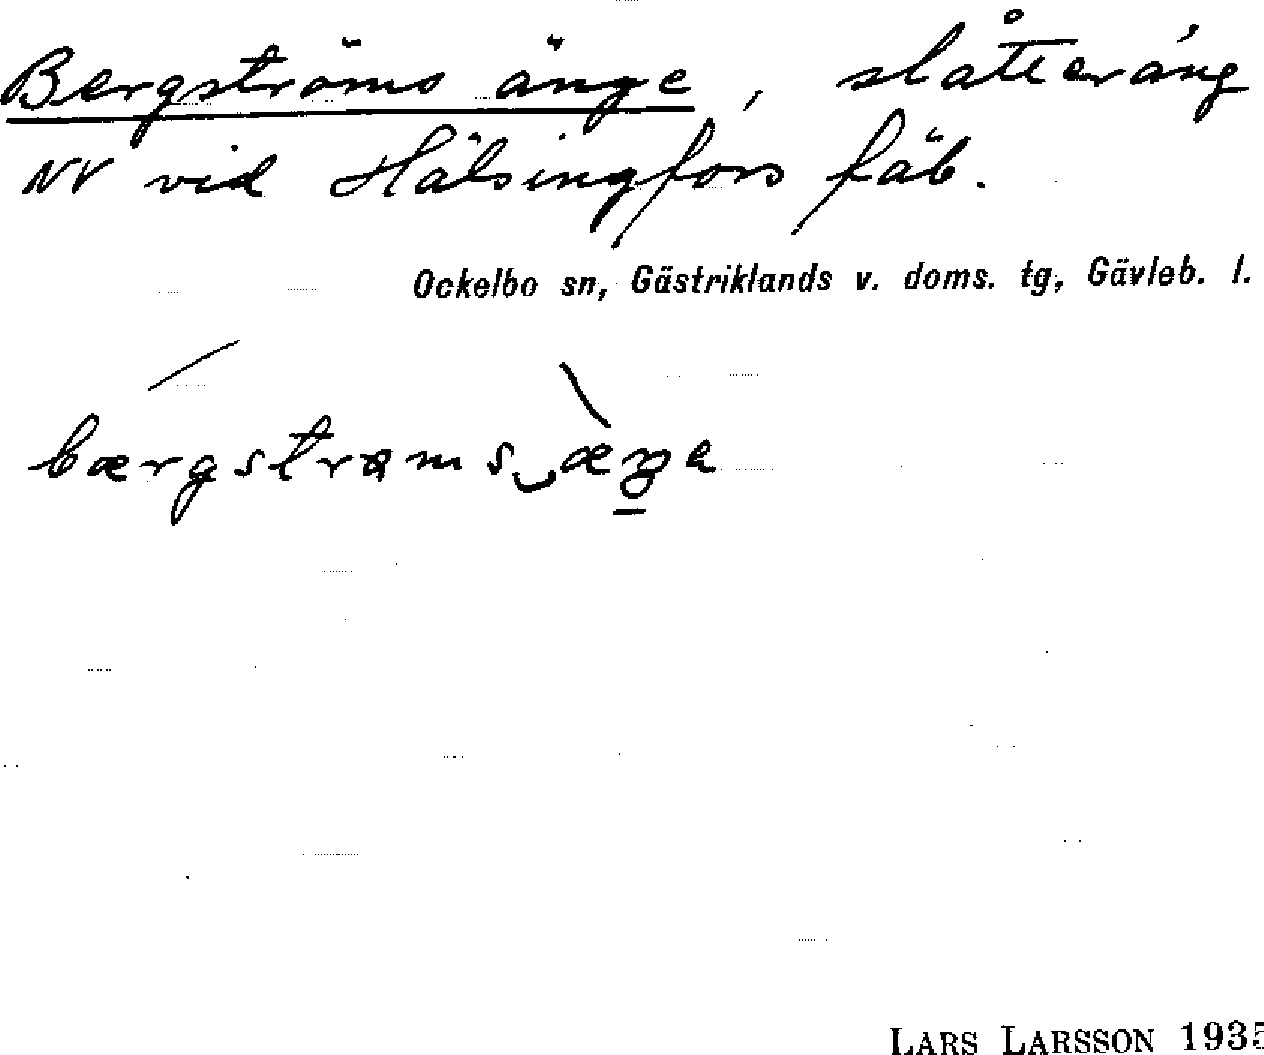 Bergströms änge, slåtteräng
NV vid Hälsingfors fäb.
Ockelbo sn, Gästriklands v. doms. tg, Gävleb. l.
LARS LARSSON 1935